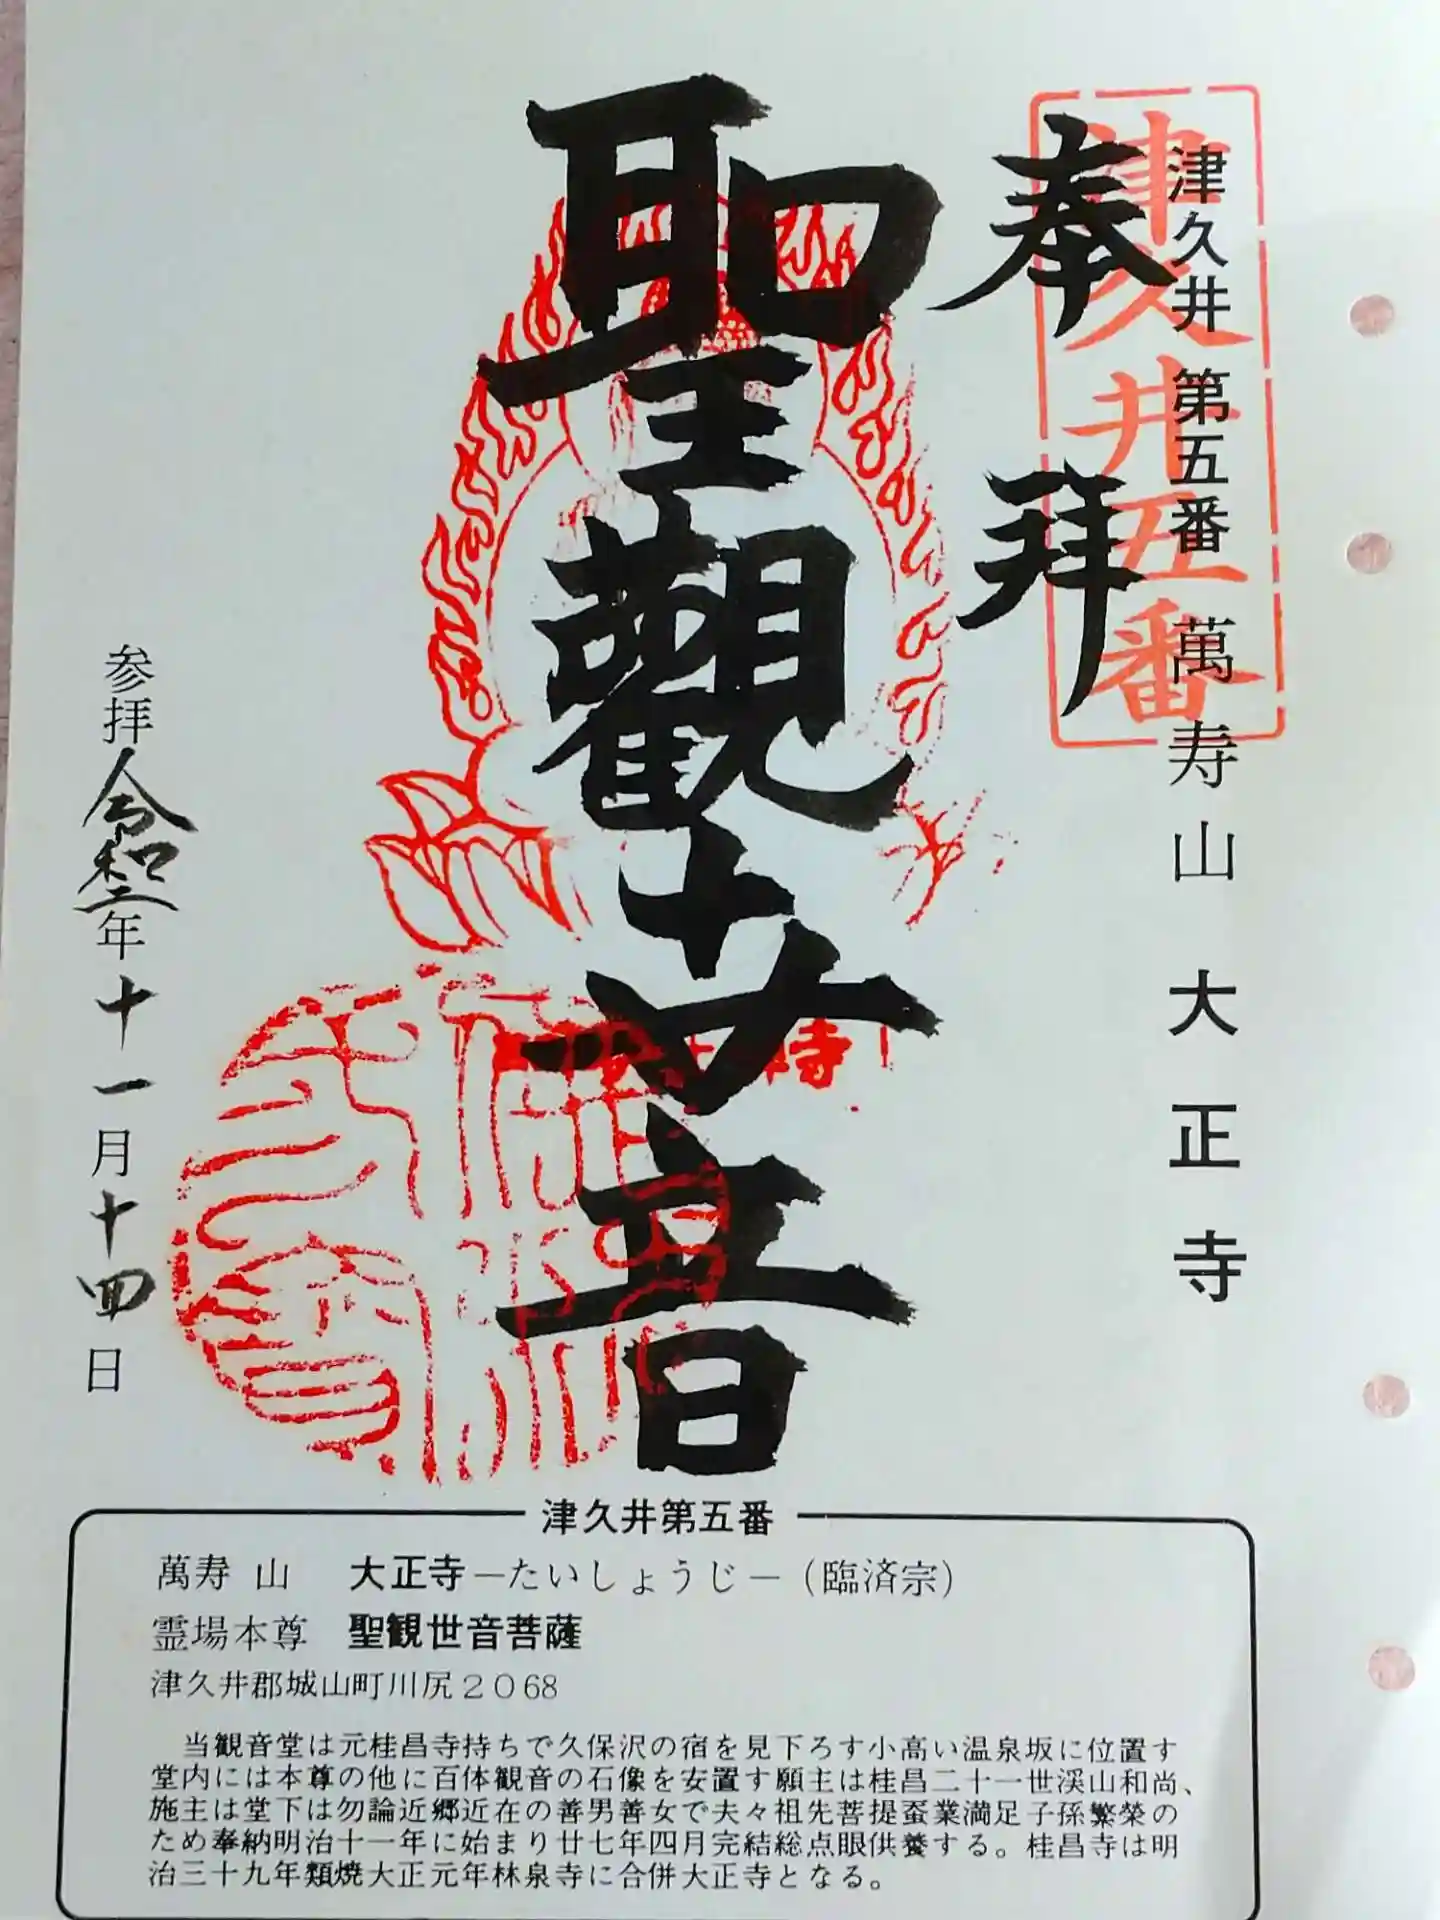 津久井 第五番 萬寿山 大正寺
津久井五番
奉拝
聖觀世音
参拝 令和二年十一月十四日
津久井第五番
萬寿山 大正寺―たいしょうじ―（臨済宗）
霊場本尊 聖観世音菩薩
津久井郡城山町川尻２０６８
当観音堂は元桂昌寺持ちで久保沢の宿を見下ろす小高い温泉坂に位置す
堂内には本尊の他に百体観音の石像を安置す願主は桂昌二十一世渓山和尚、
施主は堂下は勿論近郷近在の善男善女で夫々祖先菩提蚕業満足子孫繁榮の
ため奉納明治十一年に始まり廿七年四月完結総点眼供養する。桂昌寺は明
治三十九年類焼大正元年林泉寺に合併大正寺となる。